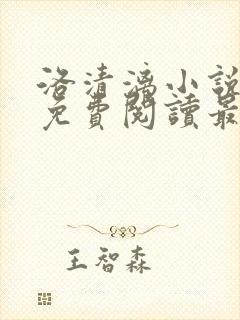 洛清漓小說
免費閱讀最
王智森